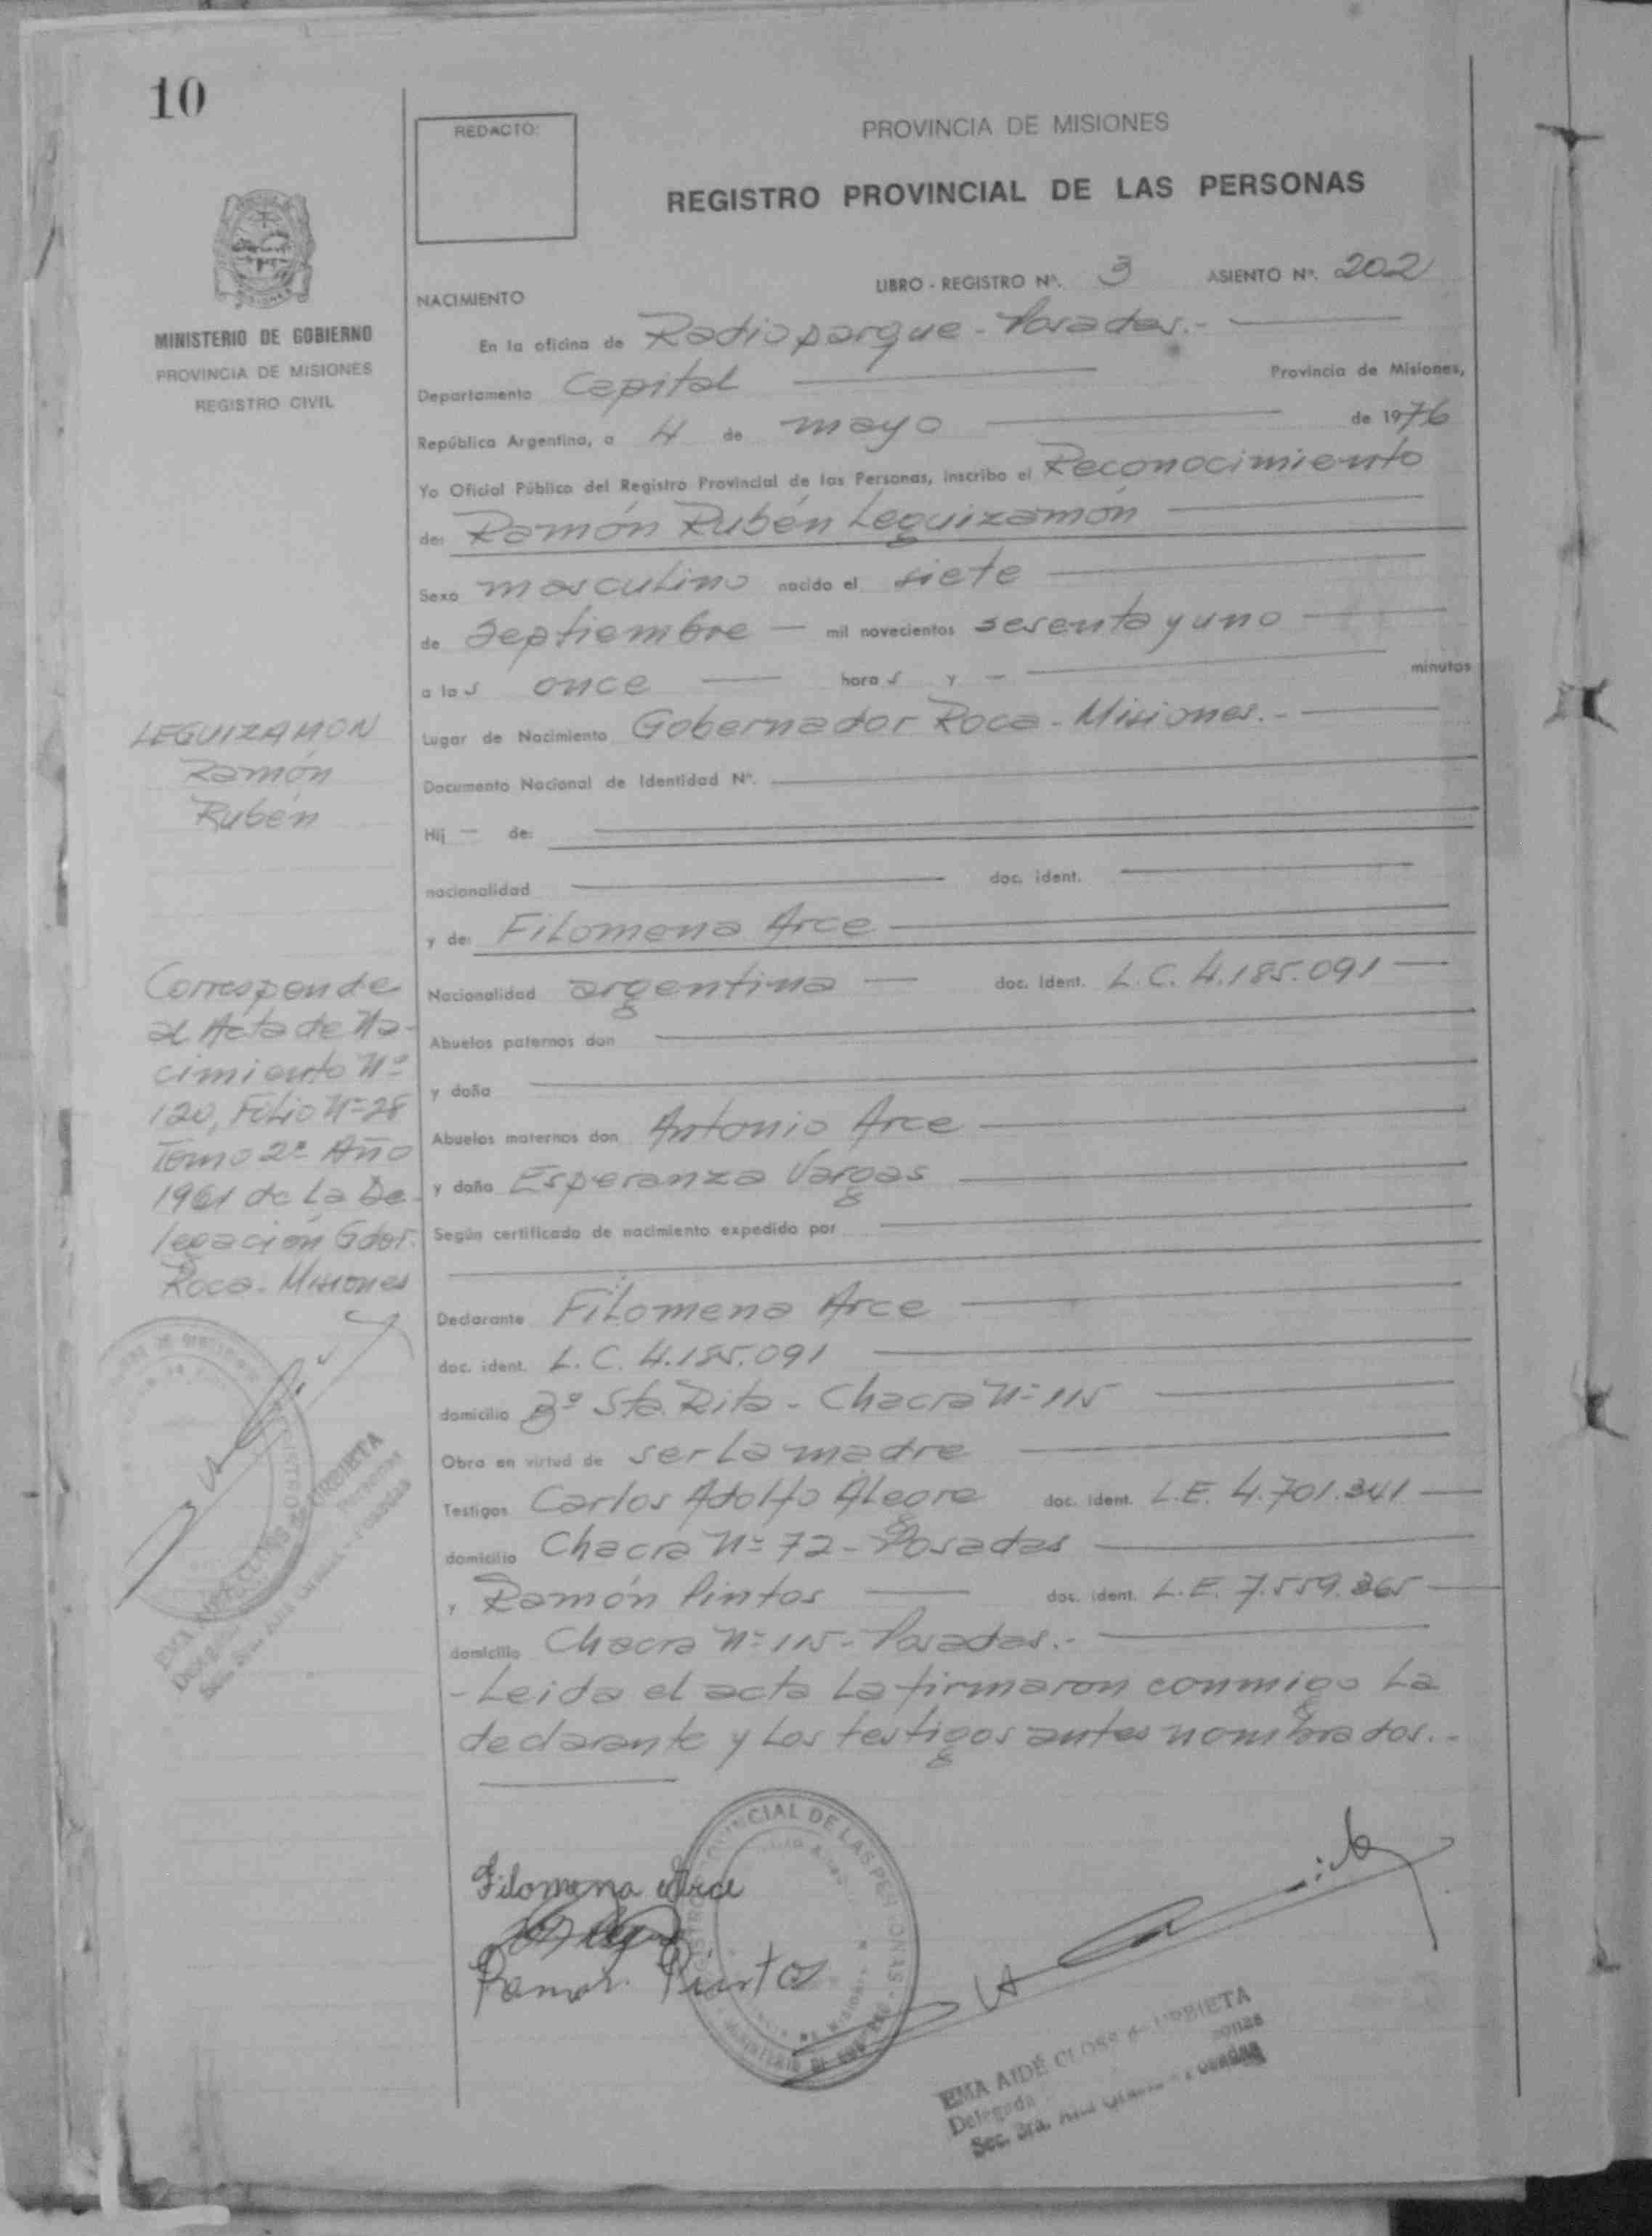 10
REDACTO:
PROVINCIA DE MISIONES
REGISTRO PROVINCIAL DE LAS PERSONAS
MINISTERIO DE GOBIERNO
PROVINCIA DE MISIONES
REGISTRO CIVIL
LIBRO - REGISTRO Nº. 3 ASIENTO Nº. 202
NACIMIENTO
En la oficina de Radioparque - Posadas.-
Departamento Capital Provincia de Misiones,
República Argentina, a 4 de mayo de 1976
Yo Oficial Público del Registro Provincial de las Personas, inscribo el Reconocimiento
de: Ramón Rubén Leguizamón
Sexo masculino nacido el siete
de Septiembre — mil novecientos sesenta y uno
a las once hora s y — minutos
Lugar de Nacimiento Gobernador Roca - Misiones.-
Documento Nacional de Identidad Nº.
Hij — de:
nacionalidad doc. ident.
y de: Filomena Arce
Nacionalidad argentina — doc. ident. L.C. 4.185.091 —
Abuelos paternos don
y doña
Abuelos maternos don Antonio Arce
y doña Esperanza Vargas
Según certificado de nacimiento expedido por
Declarante Filomena Arce
doc. ident. L.C. 4.185.091
domicilio Bº Sta. Rita - Chacra Nº 115
Obra en virtud de ser la madre
Testigos Carlos Adolfo Alegre doc. ident. L.E. 4.701.341 —
domicilio Chacra Nº 72 - Posadas
y Ramón Pintos doc. ident. L.E. 7.559.365 —
domicilio Chacra Nº 115 - Posadas.-
- Leida el acta la firmaron conmigo la
declarante y los testigos antes nombrados.-
LEGUIZAMON
Ramón
Rubén
Corresponde
al Acta de Na-
cimiento Nº
120, Folio Nº 28
Tomo 2º Año
1961 de la De-
legación Gdor.
Roca - Misiones
URBIETA
Filomena Arce
Ramon Pintos
PROVINCIAL DE LAS PERSONAS
EMA AIDÉ CLOSS de URBIETA
Delegada
Sec. 3ra.